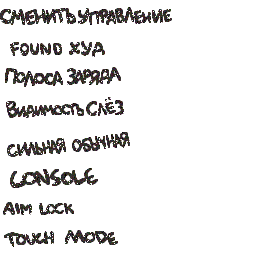 СМЕНИТЬ УПРАВЛЕНИЕ
FOUND ХУД
ПОЛОСА ЗАРЯДА
ВИДИМОСТЬ СЛЁЗ
СИЛЬНАЯ ОБЫЧНАЯ
CONSOLE
AIM LOCK
TOUCH MODE